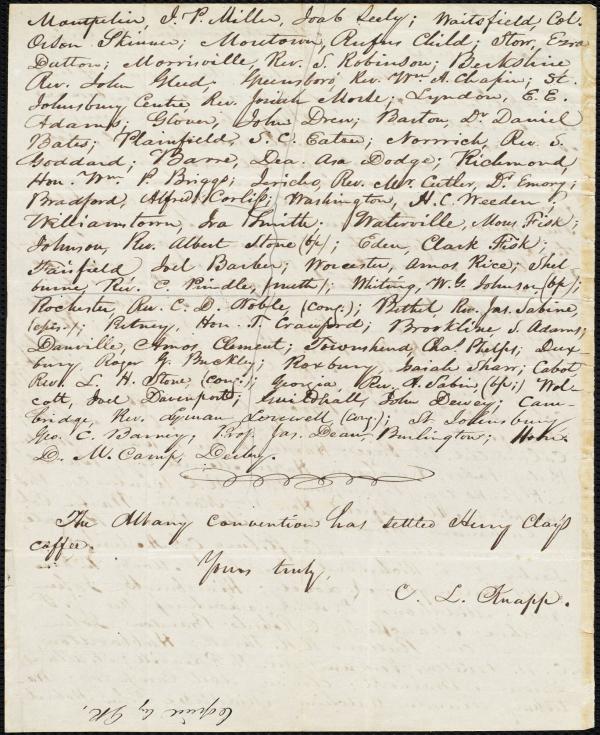 Montpelier, J. P. Miller, Joab Seely; Waitsfield Col.
Orson Skinner; Moretown, Rufus Child; Stow, Ezra
Dutton; Morrisville, Rev. S. Robinson; Berkshire
Rev. John Gleed, Greensboro, Rev. Wm A. Chapin; St.
Johnsbury Centre, Rev. Josiah Morse; Lyndon, E. E.
Adams; Glover, John Drew; Barton, Dr Daniel
Bates; Plainfield, S. C. Eaton; Norwich, Rev. S.
Goddard; Barre, Dea. Asa Dodge; Richmond,
Hon. Wm. P. Briggs; Jericho, Rev. Mr. Cutler, Dr Emory;
Bradford, Alfred Corliss; Washington, H. C. Weeden;
Williamstown, Ira Smith. Waterville, Moses Fisk;
Johnson, Rev. Albert Stone (bp); Eden, Clark Fisk;
Fairfield Joel Barber; Worcester, Amos Rice; Shel
burne, Rev. C. Pindle, (meth); Whiting, W. G. Johnson (bp);
Rochester Rev. C. D. Noble, (cong.); Bethel, Rev. Jas. Sabine,
(epis.); Putney, Hon. T. Crawford; Brookline S. Adams;
Danville, Amos Clement; Townshend, Chas Phelps; Dux
bury Roger G. Buckley; Roxbury, Isaiah Shaw; Cabot
Rev. L. H. Stone, (cong.); Georgia, Rev. A. Sabin (bp;) Wol-
cott, Joel Davenport; Guildhall, John Dewey; Cam-
bridge, Rev. Lyman Lovewell (cong); St. Johnsbury
Geo. C. Barney; Prof. Jas. Dean, Burlington; Hon.
D. M. Camp, Derby.
The Albany convention has settled Henry Clay's
coffee.
Yours truly,
C. L. Knapp.
Copied by